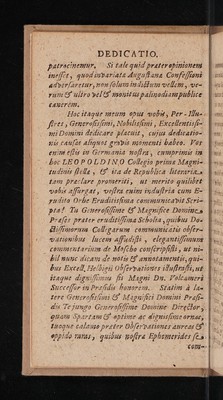 DEDICATIO.
patrocinemur. Si tale quid præter opinionem
inesset, quod invariata Augustana Confessioni
adversaretur, non solum indictum vellem, ve-
rum & ultro vel & monitus palinodiam publice
canerem.
Hoc itaque meum opus vobis, Per-Illu-
stres, Generosissimi, Nobilissimi, Excellentissi-
mi Domini dedicare placuit, cujus dedicatio-
nis causæ aliquot gravis momenti habeo. Vos
enim estis in Germania nostra, comprimis in
hoc LEOPOLDINO Collegio prima Magni-
tudinis stella, & ita de Republica literaria
tam præclare promeriti, ut merito quilibet
vobis assurgat, vestra enim industria cum E-
rudito Orbe Eruditissima communicavit Scri-
pta! Tu Generosissime & Magnifice Domine
Præses præter eruditissima Scholia, quibus Do-
ctissimorum Collegarum communicatis obser-
vationibus lucem affudisti, elegantissimum
commentarium de Moscho conscripsisti, ut ni-
hil nunc dicam de notis & annotamentis, qui-
bus Excell. Helbigii Observationes illustrasti, ut
itaque dignissimus sis Magni Dn. Volcameri
Successor in Præsidis honorem. Statim à la-
tere Generosissimi & Magnifici Domini Præsi-
dis Te jungo Generosissime Domine Director,
quam Spartam & optime ac dignissime ornas,
tuoque calamo præter Observationes aureas &
oppido raras, quibus nostra Ephemerides se
com-